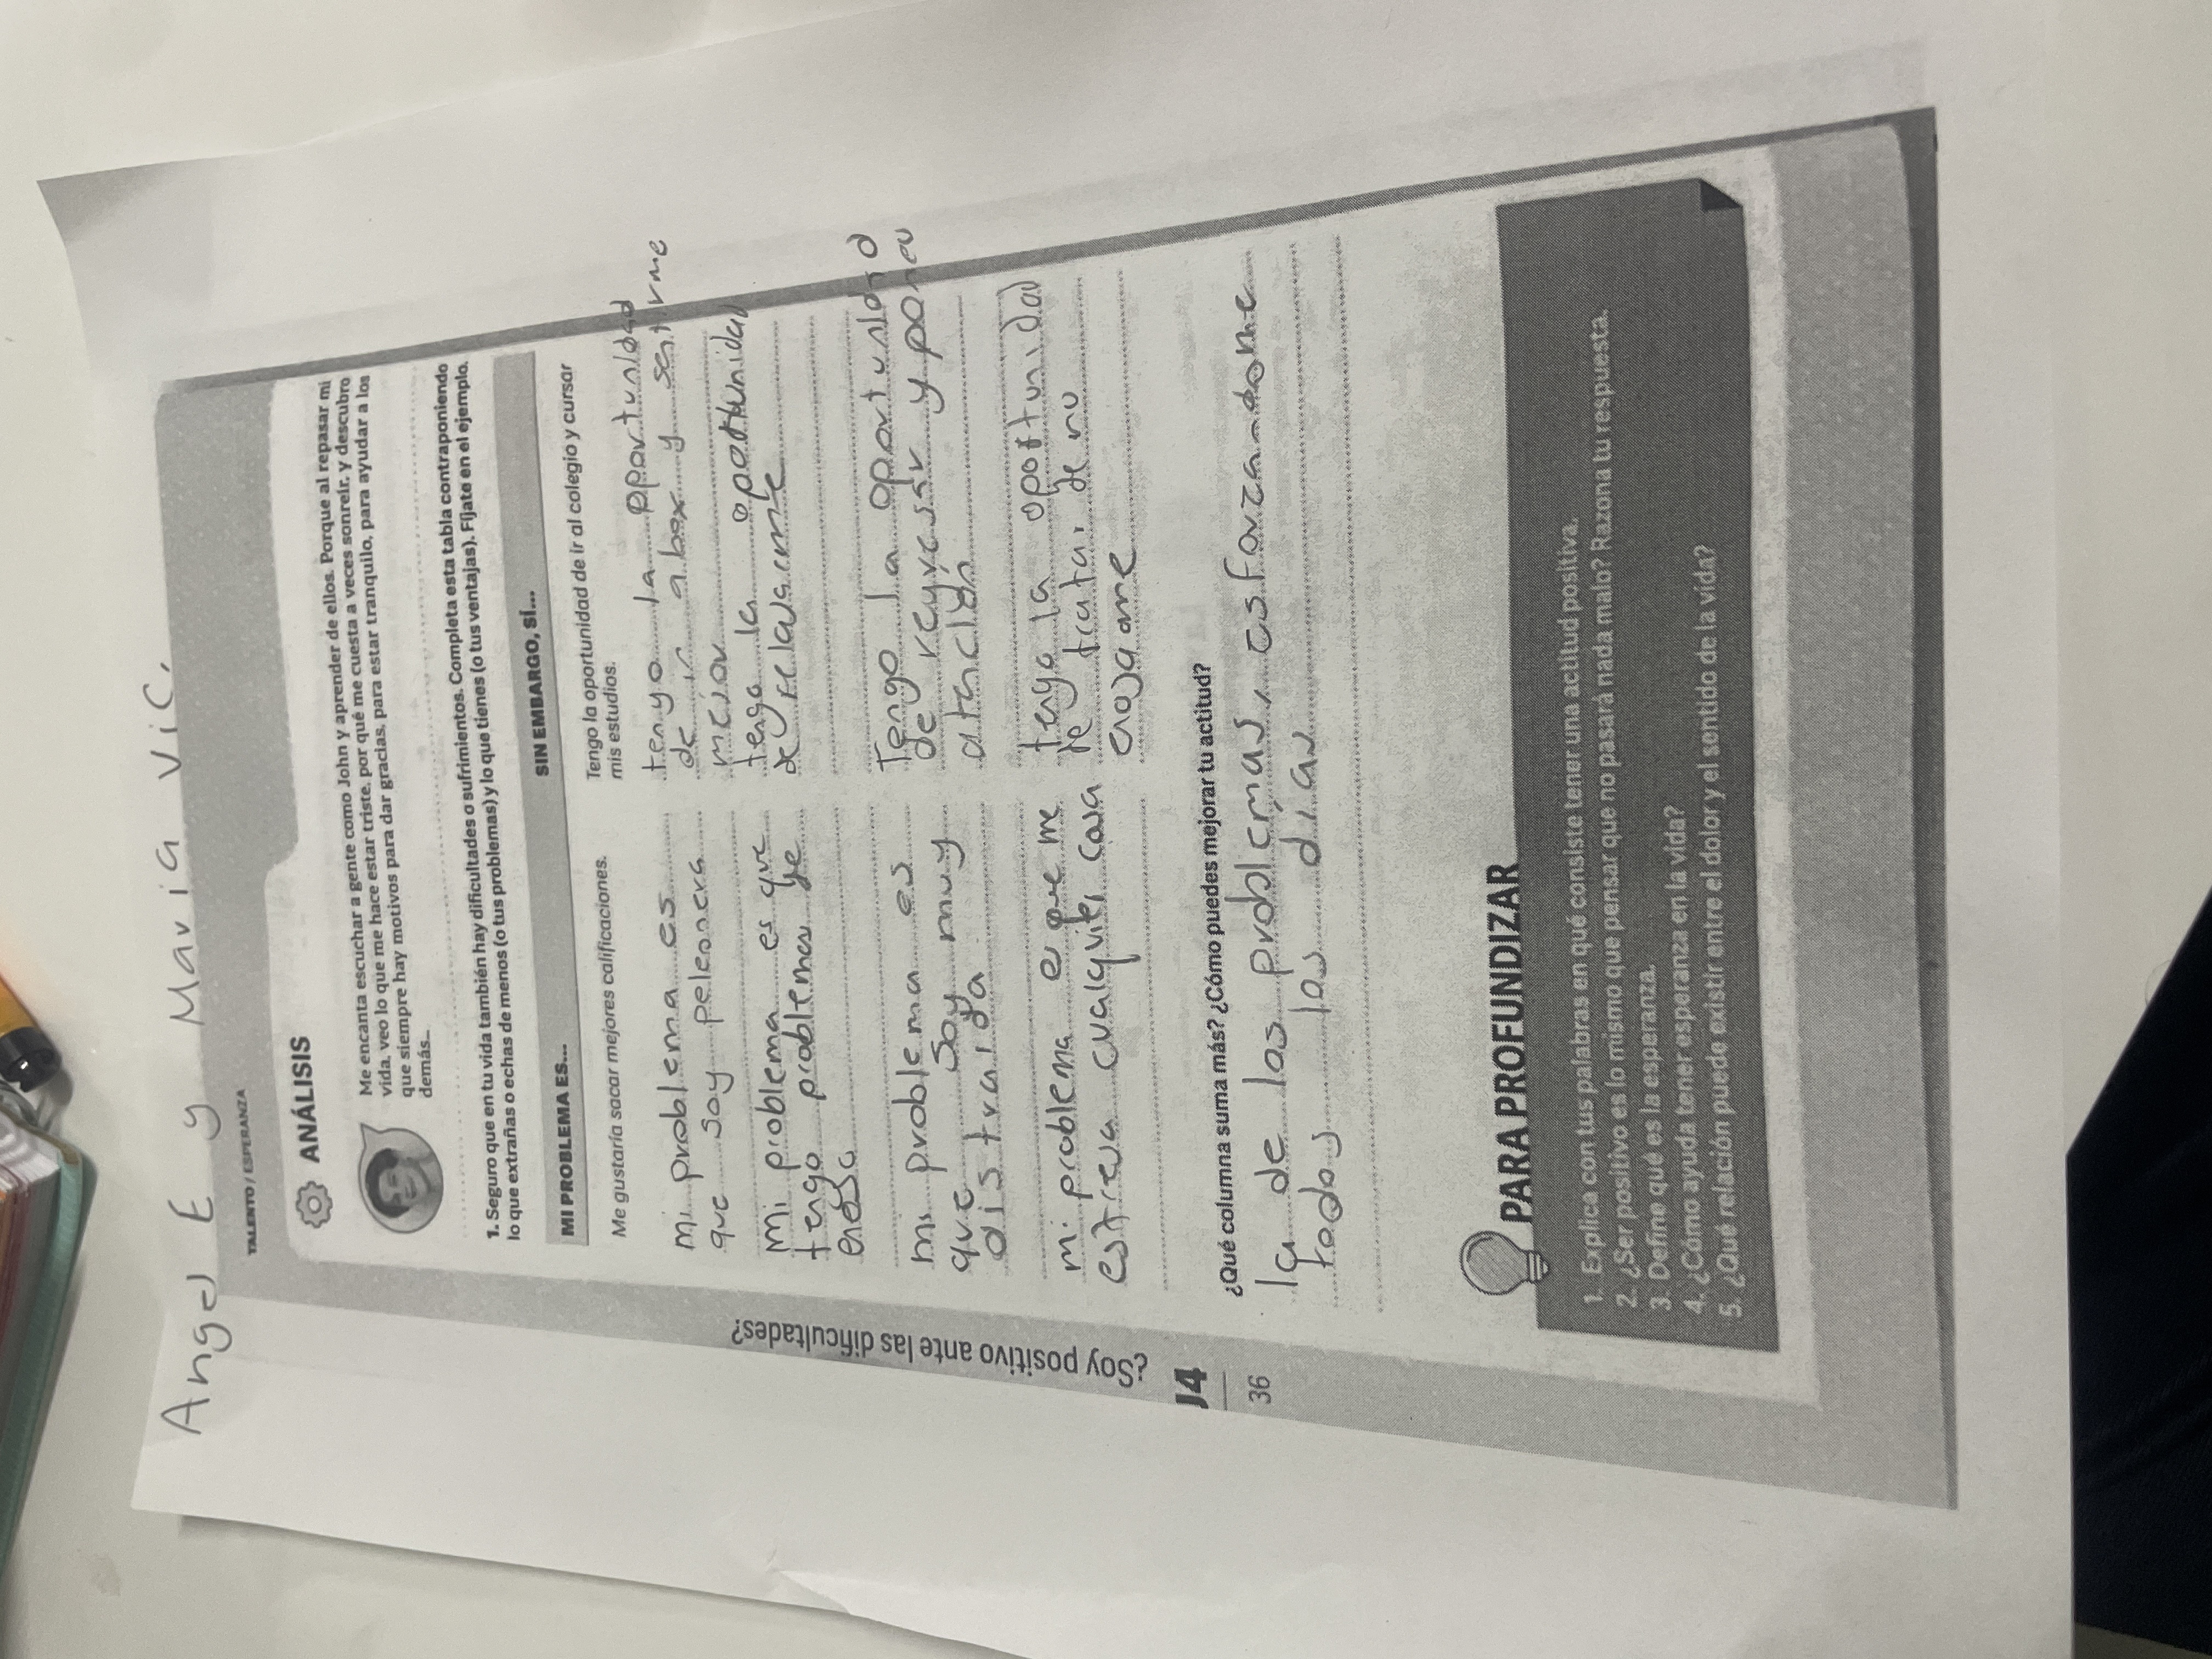 Angel E y Maria Vic.
TALENTO / ESPERANZA
ANÁLISIS
Me encanta escuchar a gente como John y aprender de ellos. Porque al repasar mi
vida, veo lo que me hace estar triste, por qué me cuesta a veces sonreír, y descubro
que siempre hay motivos para dar gracias, para estar tranquilo, para ayudar a los
demás...
1. Seguro que en tu vida también hay dificultades o sufrimientos. Completa esta tabla contraponiendo
lo que extrañas o echas de menos (o tus problemas) y lo que tienes (o tus ventajas). Fíjate en el ejemplo.
MI PROBLEMA ES...
Me gustaría sacar mejores calificaciones.
mi problema es
que soy peleonera
mi problema es que
tengo problemas de
enojo
mi problema es
que soy muy
distraida
mi problema e que me
estresa cualquier cosa
SIN EMBARGO, SÍ...
Tengo la oportunidad de ir al colegio y cursar
mis estudios.
tengo la oportunidad
de ir a box y sentirme
mejor
tengo la oportunidad
de
Tengo la oportunidad
de regresar y poner
atencion
tengo la oportunidad
de tratar de no
enojarme
¿Qué columna suma más? ¿Cómo puedes mejorar tu actitud?
la de los problemas, esforzandome
todos los dias
¿Soy positivo ante las dificultades?
J4
36
PARA PROFUNDIZAR
1. Explica con tus palabras en qué consiste tener una actitud positiva.
2. ¿Ser positivo es lo mismo que pensar que no pasará nada malo? Razona tu respuesta.
3. Define qué es la esperanza.
4. ¿Cómo ayuda tener esperanza en la vida?
5. ¿Qué relación puede existir entre el dolor y el sentido de la vida?